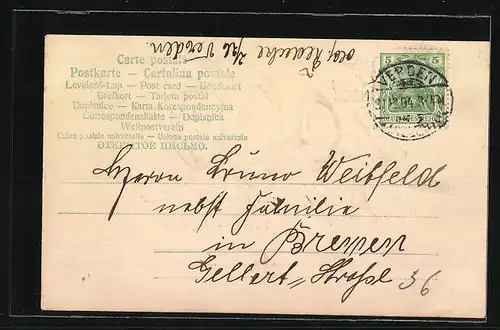 Carte postale
Postkarte – Cartolina postale
Levelező-Lap – Post card – Briefkaart
Brefkort – Tarjeta postal
Dopisnice – Karta Korespondencyjna
Correspondenzkarte – Dopisnica
Weltpostverein
Union postale universelle – Unione postale universale
ОТКРЫТОЕ ПИСЬМО.
Verden
5 5
VERDEN
Herrn Bruno Weitfeld
nebst Familie
in Bremen
Gellert-Straße 36